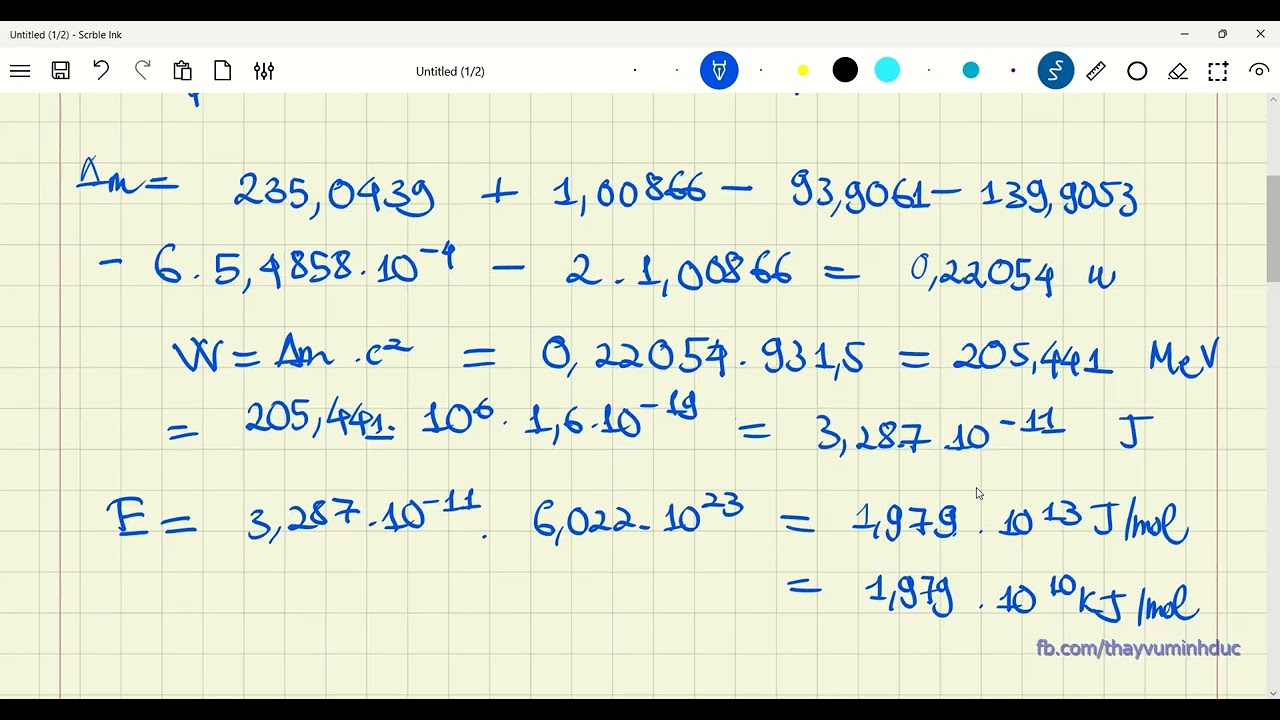 Untitled (1/2) - Scrble Ink
Untitled (1/2)
Δm = 235,0439 + 1,00866 - 93,9061 - 139,9053
- 6 . 5,4858 . 10⁻⁴ - 2 . 1,00866 = 0,22054 u
W = Δm . c² = 0,22054 . 931,5 = 205,441 MeV
= 205,441 . 10⁶ . 1,6 . 10⁻¹⁹ = 3,287 . 10⁻¹¹ J
E = 3,287 . 10⁻¹¹ . 6,022 . 10²³ = 1,979 . 10¹³ J/mol
= 1,979 . 10¹⁰ KJ/mol
fb.com/thayvuminhduc